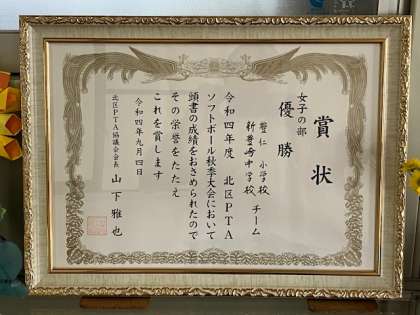 賞状
女子の部
優勝
豊仁 小学校
新豊崎中学校 チーム
令和四年度 北区PTA
ソフトボール秋季大会において
頭書の成績をおさめられたので
その栄誉をたたえ
これを賞します
令和四年九月四日
北区PTA協議会会長 山下雅也